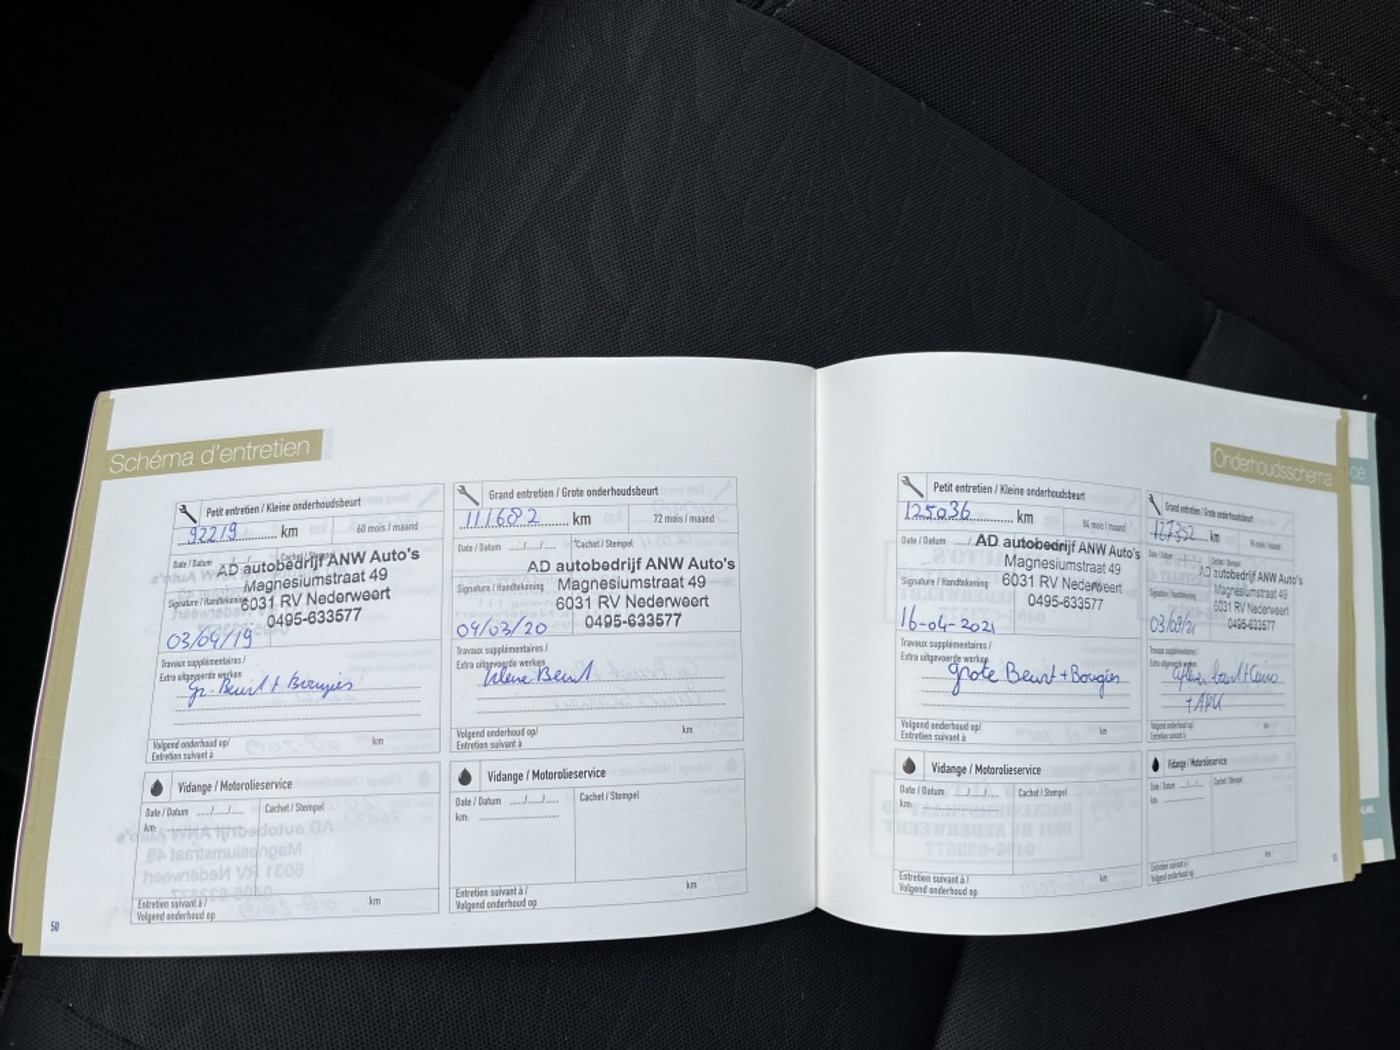 Schéma d'entretien
Petit entretien / Kleine onderhoudsbeurt
92219 km
60 mois / maand
Date / Datum
Cachet / Stempel
AD autobedrijf ANW Auto's
Magnesiumstraat 49
Signature / Handtekening
6031 RV Nederweert
0495-633577
03/04/19
Travaux supplémentaires /
Extra uitgevoerde werken
Gr. Beurt + Bougies
Volgend onderhoud op/
Entretien suivant à
km
Vidange / Motorolieservice
Date / Datum
Cachet / Stempel
km:
Entretien suivant à /
Volgend onderhoud op
km
50
Grand entretien / Grote onderhoudsbeurt
111682 km
72 mois / maand
Date / Datum
Cachet / Stempel
AD autobedrijf ANW Auto's
Magnesiumstraat 49
Signature / Handtekening
6031 RV Nederweert
0495-633577
04/03/20
Travaux supplémentaires /
Extra uitgevoerde werken
kleine Beurt
Volgend onderhoud op/
Entretien suivant à
km
Vidange / Motorolieservice
Date / Datum
Cachet / Stempel
km:
Entretien suivant à /
Volgend onderhoud op
km
Onderhoudsschema
Petit entretien / Kleine onderhoudsbeurt
125036 km
84 mois / maand
Date / Datum
AD autobedrijf ANW Auto's
Magnesiumstraat 49
Signature / Handtekening
6031 RV Nederweert
0495-633577
16-04-2021
Travaux supplémentaires /
Extra uitgevoerde werken
grote Beurt + Bougies
Volgend onderhoud op/
Entretien suivant à
km
Vidange / Motorolieservice
Date / Datum
Cachet / Stempel
km:
Entretien suivant à /
Volgend onderhoud op
km
Grand entretien / Grote onderhoudsbeurt
km
96 mois / maand
Date / Datum
Cachet / Stempel
AD autobedrijf ANW Auto's
Magnesiumstraat 49
Signature / Handtekening
6031 RV Nederweert
0495-633577
03/08/21
Travaux supplémentaires /
Extra uitgevoerde werken
beurt
+ APK
Volgend onderhoud op/
Entretien suivant à
km
Vidange / Motorolieservice
Date / Datum
Cachet / Stempel
km:
Entretien suivant à /
Volgend onderhoud op
km
51
ce